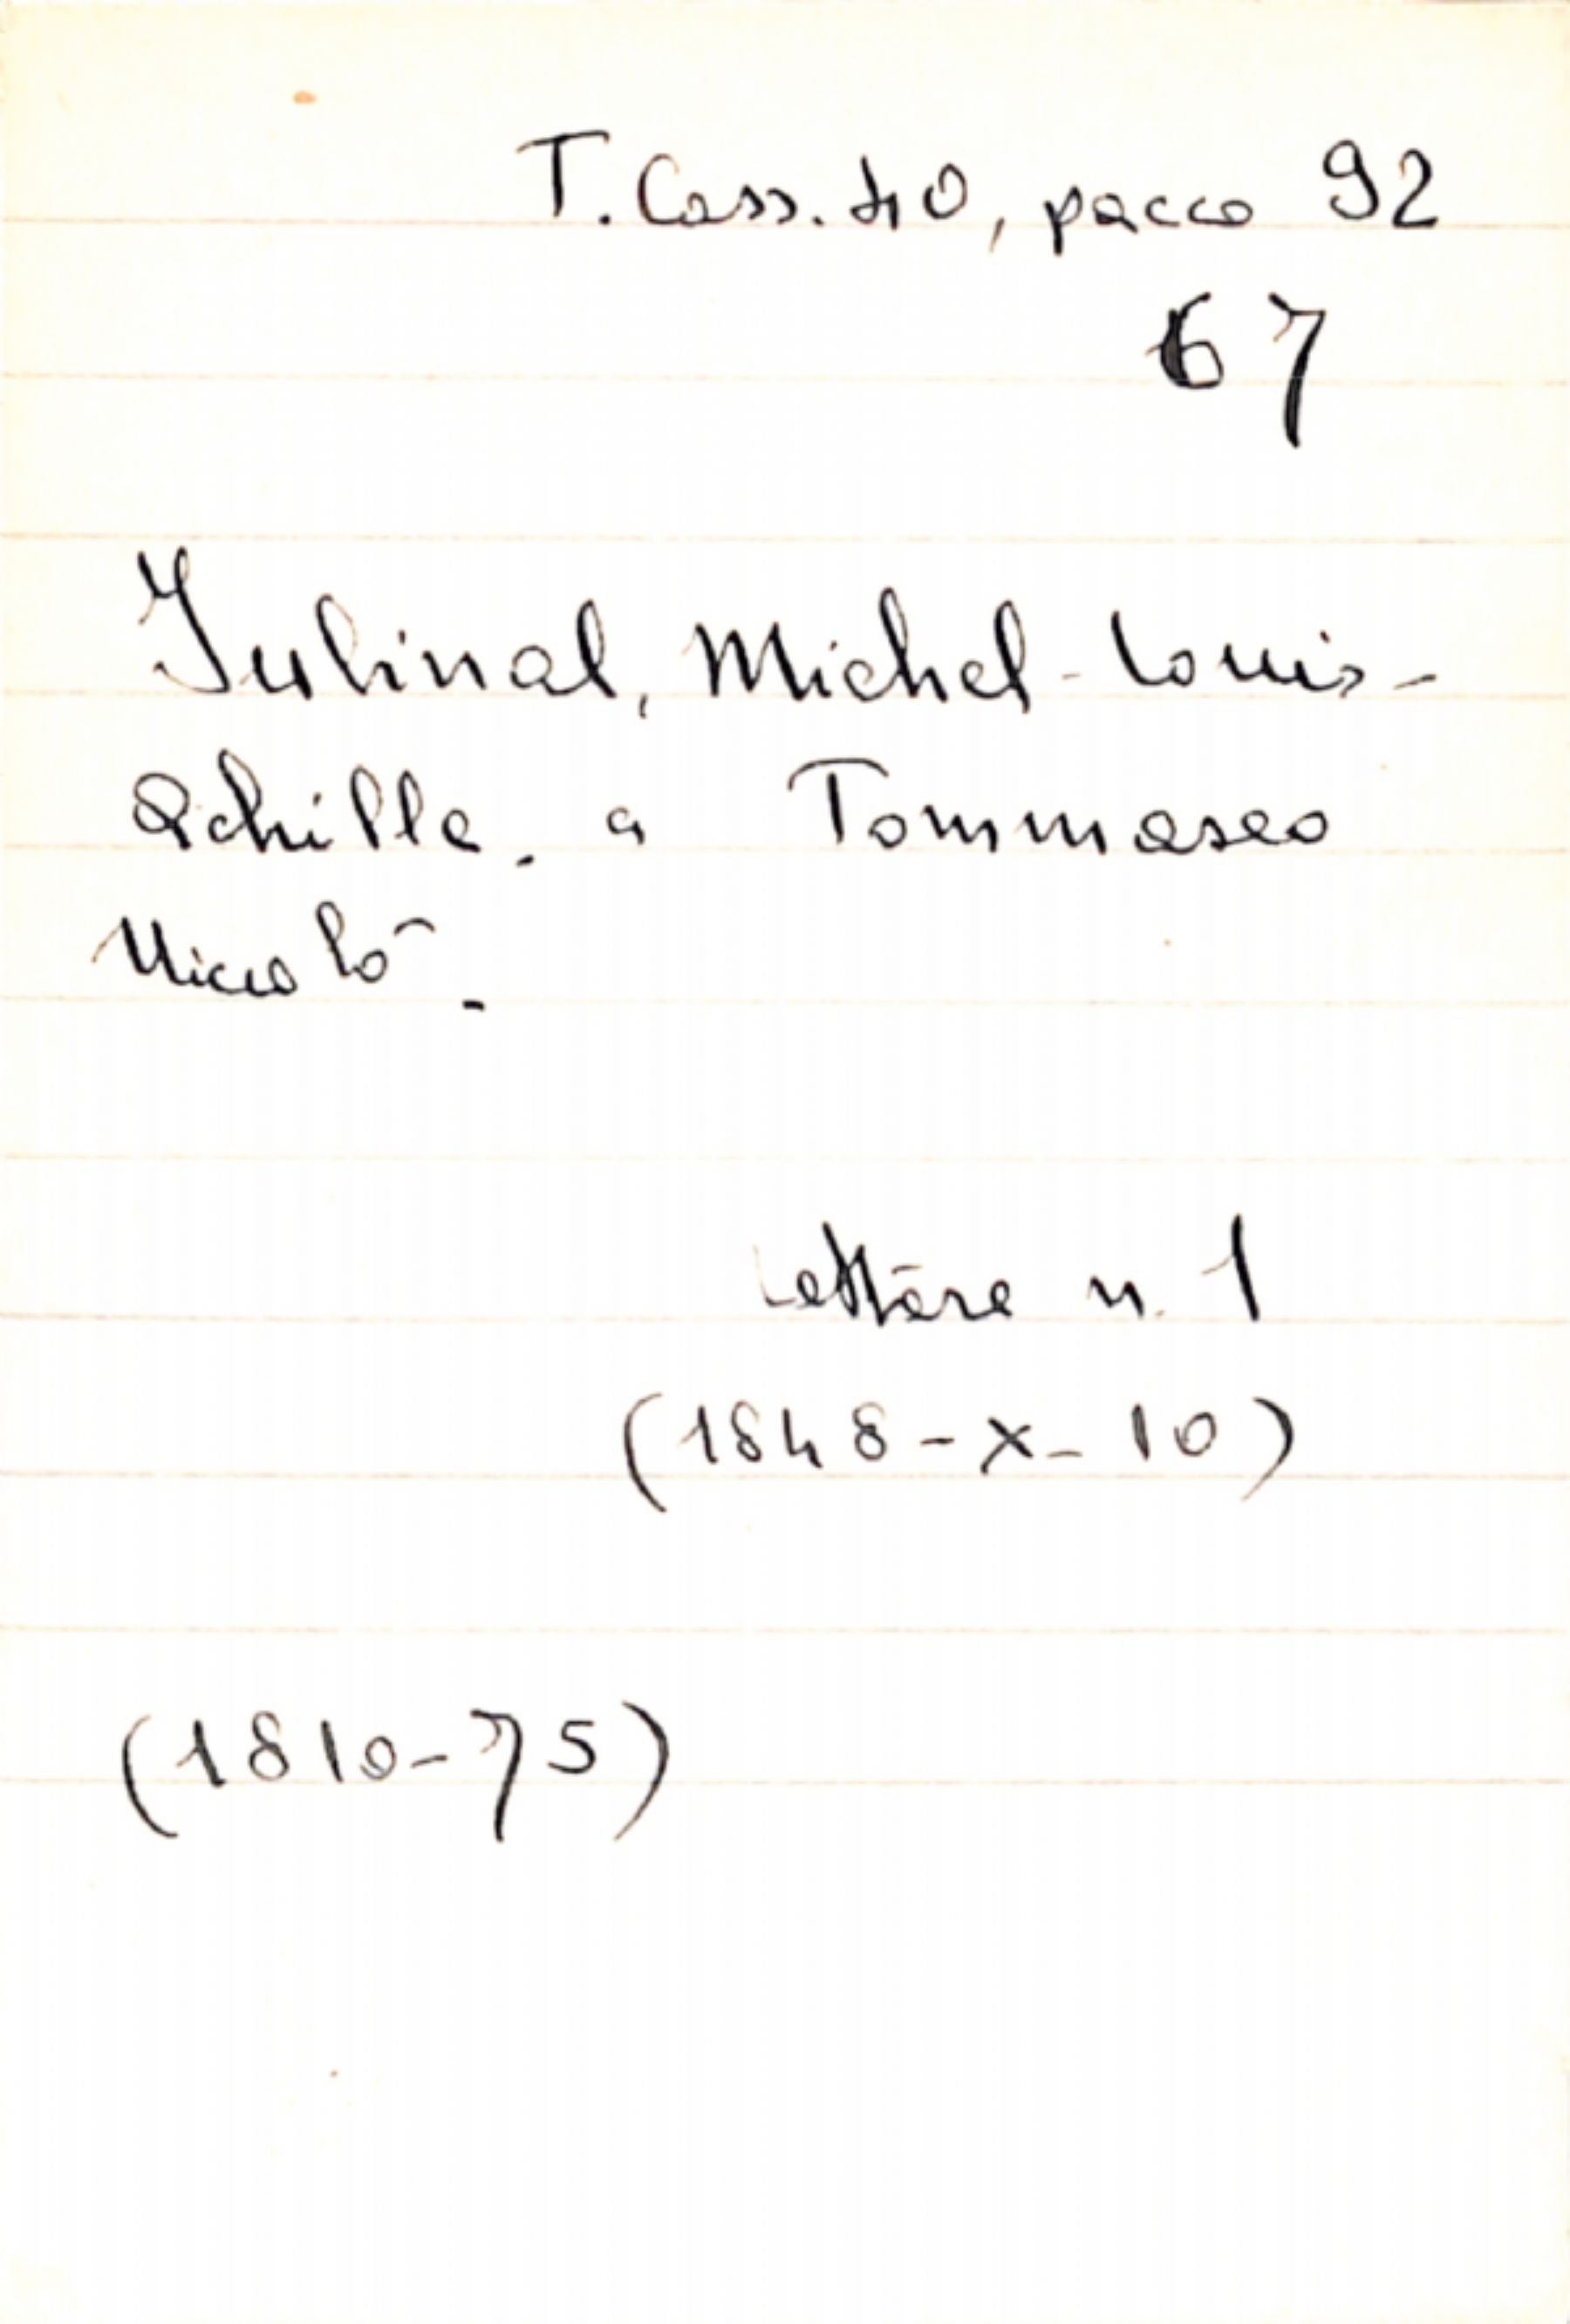 T. Cass. 40, pacco 92
67
Jubinal, Michel-Louis-
Achille. a Tommaseo
Niccolò.
Lettere n. 1
(1848-X-10)
(1810-75)